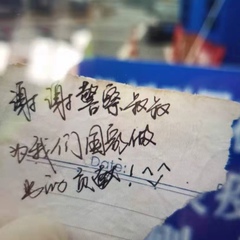 谢谢警察叔叔
为我们国家做
Date:
出的贡献！^^